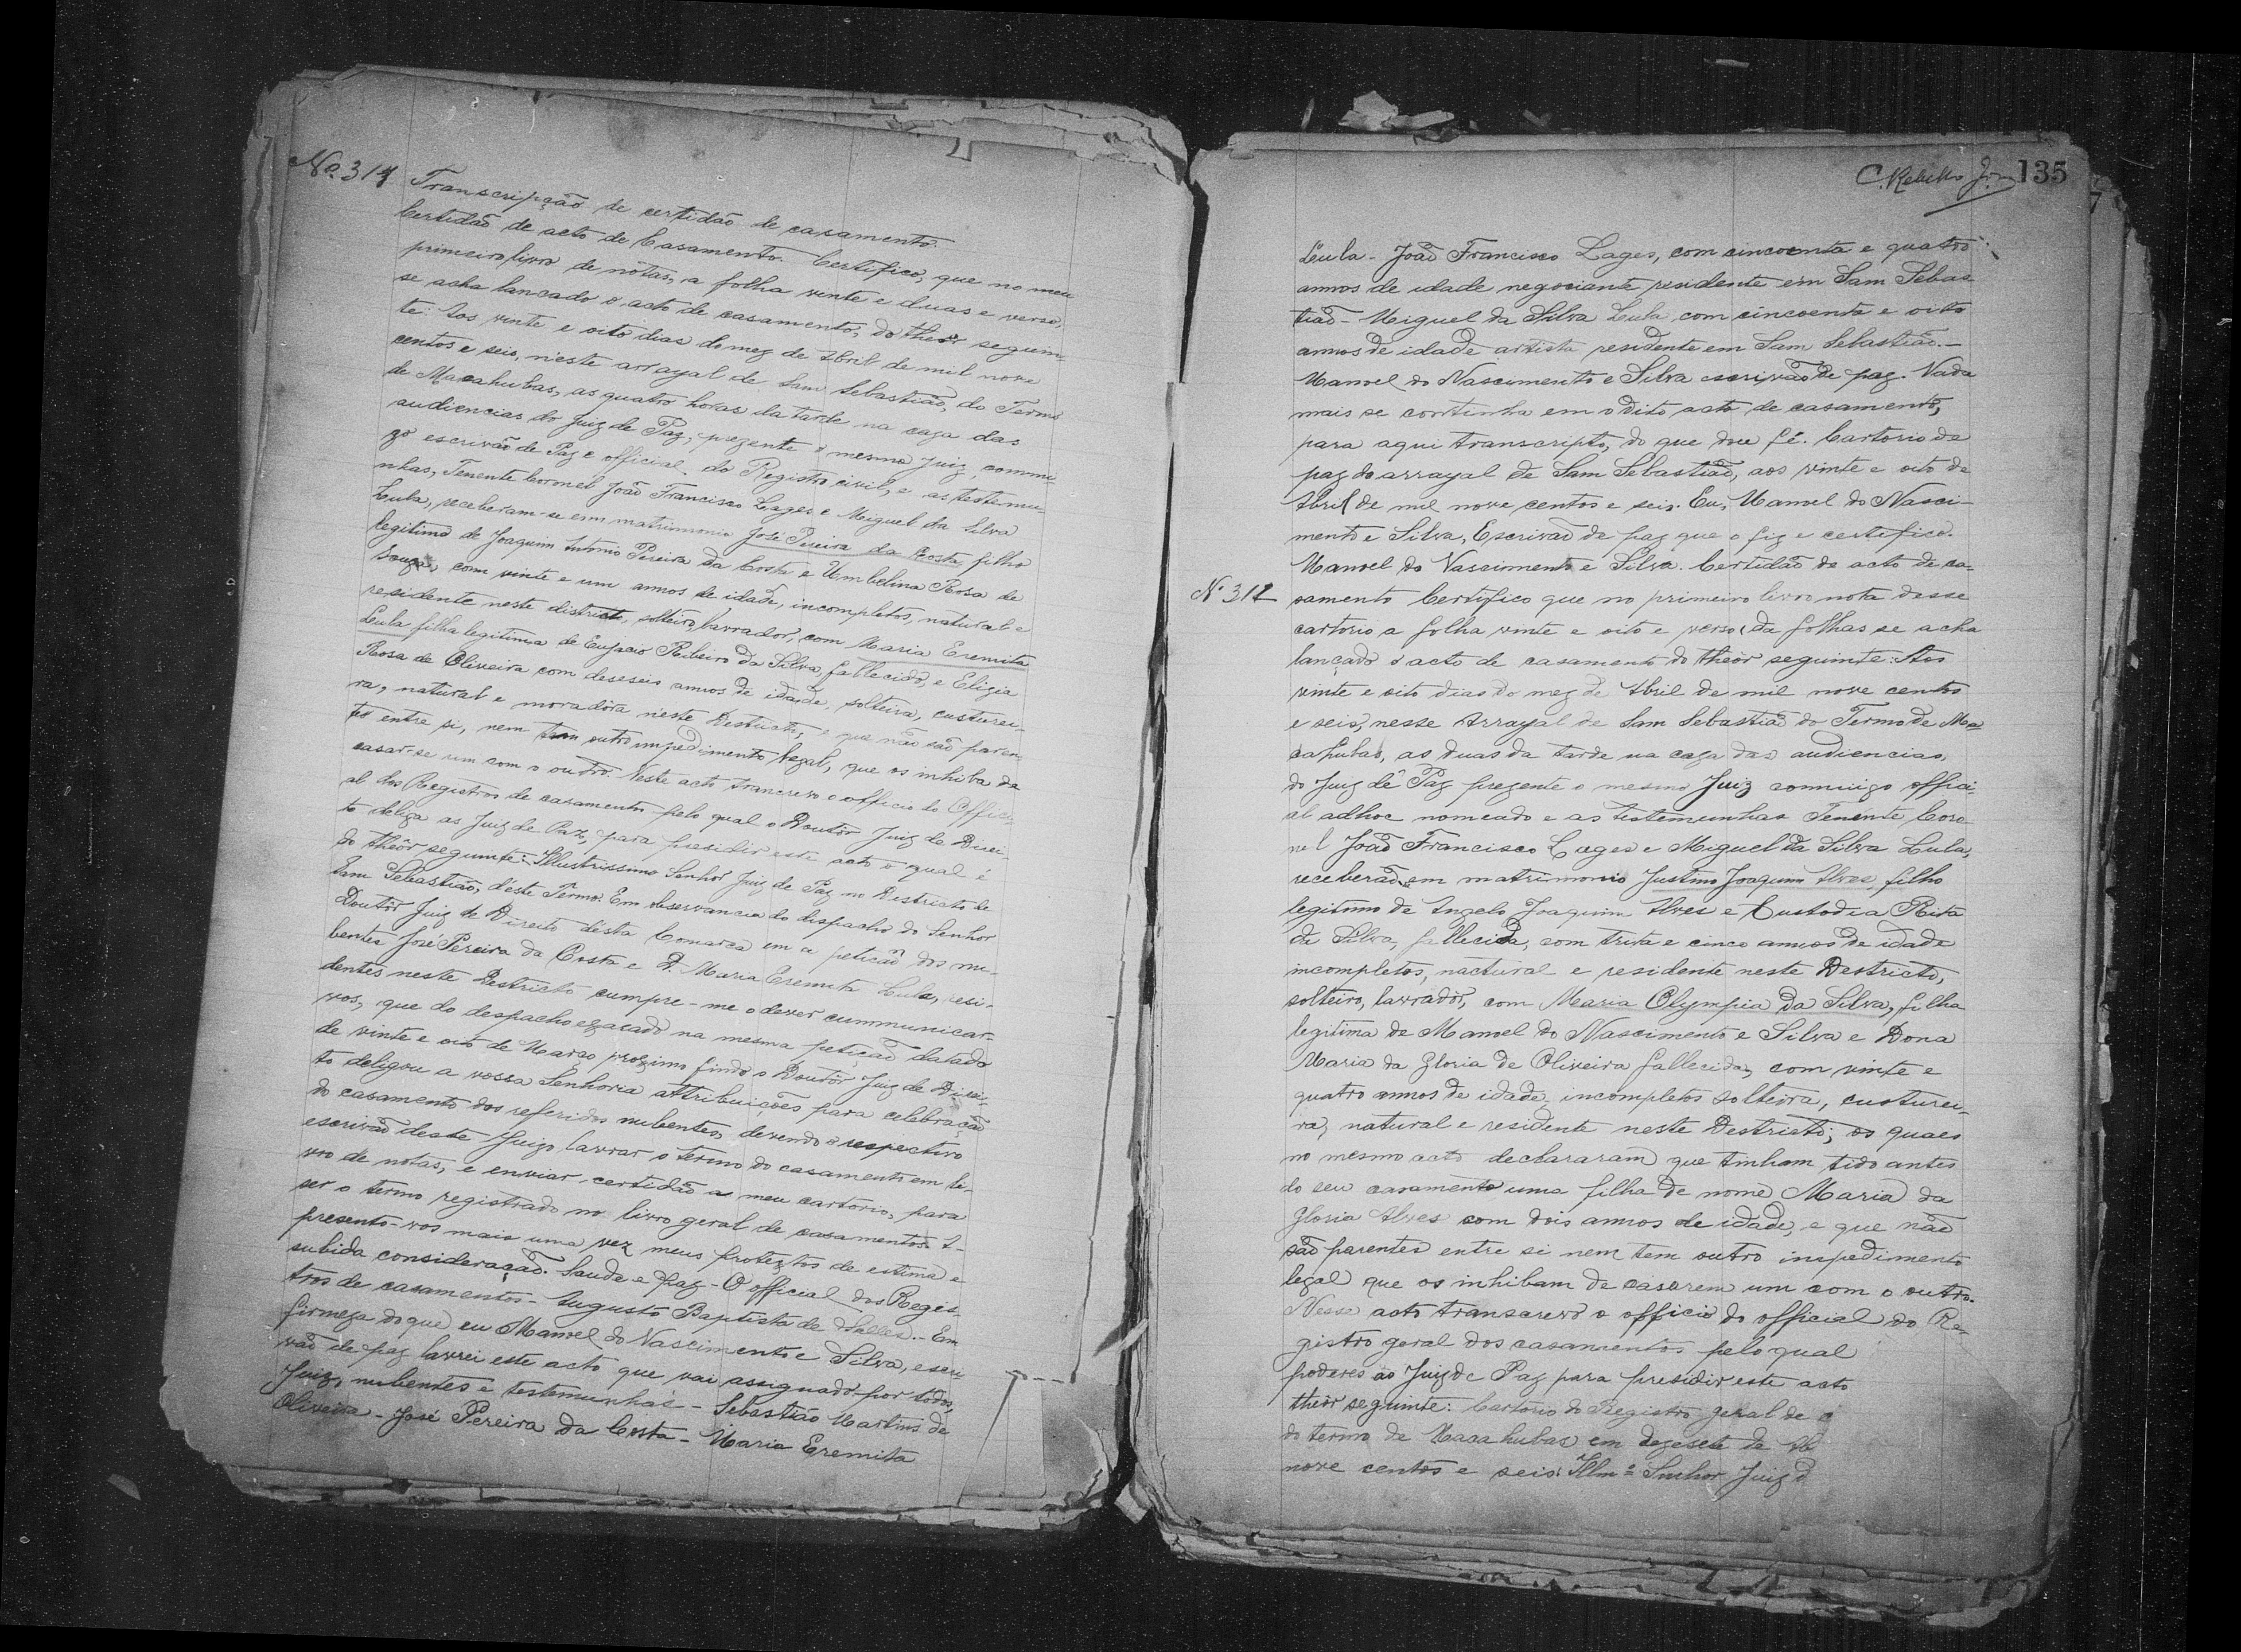 No. 311 Transcripção de certidão de casamento.
Certidão de acto de Casamento. Certifico, que no meu
primeiro livro de notas, a folha vinte e duas e verso,
se acha lancado o acto de casamento, do theor seguin-
te: Aos vinte e oito dias do mez de Abril de mil nove
centos e seis, n'este arrayal de Sam Sebastião, do Termo
de Macahubas, as quatro horas da tarde na caza das
audiencias do Juiz de Paz, prezente o mesmo juiz, commi-
go escrivão de Paz e official do Registro civil, e as testemu-
nhas, Tenente Coronel João Francisco Lages e Miguel da Silva
Lula, receberam-se em matrimonio José Pereira da Costa, filho
legitimo de Joaquim Antonio Pereira da Costa e Umbelina Rosa de
Souza, com vinte e um annos de idade, incompletos, natural e
residente neste districto, solteiro, lavrador, com Maria Eremita
Lula filha legitima de Ribeiro da Silva, fallecido, e Eligia
Rosa de Oliveira com deseseis annos de idade, solteira, custurei-
ra, natural e moradora n'este Destricto, e que não são paren-
tes entre si, nem tem outro impedimento legal, que os inhiba de
casar-se um com o outro. Neste acto trancrevo o officio do Offici-
al dos Registros de casamento pelo qual o Doutor Juiz de Direi-
to deliga as Juiz de Paz, para presidir este acto o qual é
do theôr seguinte: Illustrissimo Senhor Juiz de Paz no Destricto de
Sam Sebastião, d'este Termo. Em observancia do despacho do Senhor
Doutôr Juiz de Direito d'esta Comarca em a petição dos nu-
bentes José Pereira da Costa e D. Maria Eremita Lula, resi-
dentes neste Destricto cumpre-me o dever cummunicar-
vos, que do despacho exarado na mesma petição datado
de vinte e oito de Março proximo findo o Doutôr Juiz de Direi-
to deligou a vossa Senhoria attribuições para celebração
do casamento dos referidos nubentes, devendo o respectivo
escrivão deste Juizo lavrar o termo do casamento em li-
vro de notas, e enviar certidão a meu cartorio, para
ser o termo registrado no livro geral de casamentos. A-
presento-vos mais uma vez meus protextos de estima e
subida consideração. Saude e Paz - O official dos Regis-
tros de casamentos - Augusto Baptista de Salles. - Em
firmeza do que eu Manoel do Nascimento e Silva, escri-
vão de paz lavrei este acto que vai assignado por todos,
Juiz, nubentes e testemunhas - Sebastião Martins de
Oliveira - José Pereira da Costa - Maria Eremita
C. Rebello Jor. 135
Lula - João Francisco Lages, com cincoenta e quatro
annos de idade negociante residente em Sam Sebas
tião - Miguel da Silva Lula com cincoenta e oito
annos de idade artista residente em Sam Sebastião. -
Manoel do Nascimento e Silva escrivão de paz. Nada
mais se continha em o dito acto de casamento,
para aqui transcripto, do que dou fé. Cartorio da
paz do arrayal de Sam Sebastião, aos vinte e oito de
Abril de mil nove centos e seis. Eu, Manoel do Nasci-
mento e Silva, Escrivão da paz que o fiz e certifico.
Manoel do Nascimento e Silva. Certidão do acto de ca-
N. 312 samento Certifico que no primeiro livro nota desse
cartorio a folha vinte e oito e verso da folhas se acha
lançado o acto de casamento do theôr seguinte: Aos
vinte e oito dias do mez de Abril de mil nove centos
e seis, nesse Arrayal de Sam Sebastião do Termo de Ma-
cahubas, as duas da tarde na caza das audiencias,
do Juiz de Paz prezente o mesmo Juiz commigo offici-
al adhoc nomeado e as testemunhas Tenente Coro-
nel João Francisco Lages e Miguel da Silva Lula,
receberão em matrimonio Justino Joaquim Alves, filho
legitimo de Angelo Joaquim Alves e Custodia Rita
da Silva, fallecida, com trita e cinco annos de idade
incompletos, nactural e residente neste Destricto,
solteiro, lavradôr, com Maria Olympia da Silva, filha
legitima de Manoel do Nascimento e Silva e Dona
Maria da Gloria de Oliveira fallecida, com vinte e
quatro annos de idade, incompletos solteira, custurei-
ra, natural e residente neste Destricto; os quaes
no mesmo acto declararam que tinham tido antes
do seu casamento uma filha de nome Maria da
Gloria Alves com dois annos de idade, e que não
são parentes entre si nem tem outro impedimento
legal que os inhibam de casarem um com o outro.
Nesse acto transcrevo o officio do official do Re-
gistro geral dos casamentos pelo qual
poderes ao Juiz de Paz para presidir este acto
theôr seguinte: Cartorio do Registro geral de c
do termo de Macahubas em dezesete de Ab
nove centos e seis. Illmo Senhor Juiz d